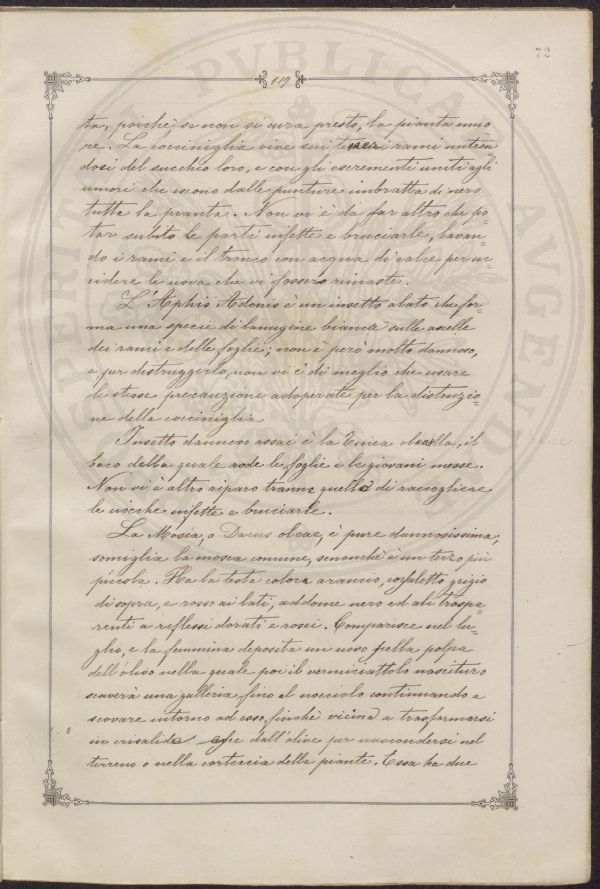 72
119
PVBLICA
ta, poichè se non si cura presto, la pianta muo
re. La cocciniglia vive sui teneri rami nutren=
dosi del succhio loro, e con gli escrementi uniti agli
umori che escono dalle punture imbratta di nero
tutta la pianta. Non vi è da far altro che po=
tar subito le parti infette e bruciarle, lavan=
do i rami e il tronco con acqua di calce per uc=
cidere le uova che vi fossero rimaste.
L'Aphis Adonis è un insetto alato che for=
ma una specie di lanugine bianca sulle ascelle
dei rami e delle foglie; non è però molto dannoso,
e per distruggerlo, non vi è di meglio che usare
le stesse precauzioni adoperate per la distruzio=
ne della cocciniglia
Insetto dannoso assai è la Tinea oleaella, il
baco della quale rode le foglie e le giovani messe.
Non vi è altro riparo tranne quello di raccogliere
le ciocche infette e bruciarle.
La Mosca, o Dacus oleae, è pure dannosissima,
somiglia la mosca comune, senonchè è un terzo più
piccola. Ha la testa colore arancio, corsaletto grigio
di sopra, e rosso ai lati, addome nero ed ali traspa=
renti a reflessi dorati e rossi. Comparisce nel lu=
glio, e la femmina deposita un uovo nella polpa
dell'olivo nella quale poi il vermiciattolo nascituro
scaverà una galleria, fino al nocciolo continuando a
scovare intorno ad esso, finchè vicina a trasformarsi
in crisalide esce dall'olive per nascondersi nel
terreno o nella corteccia delle piante. Essa ha due